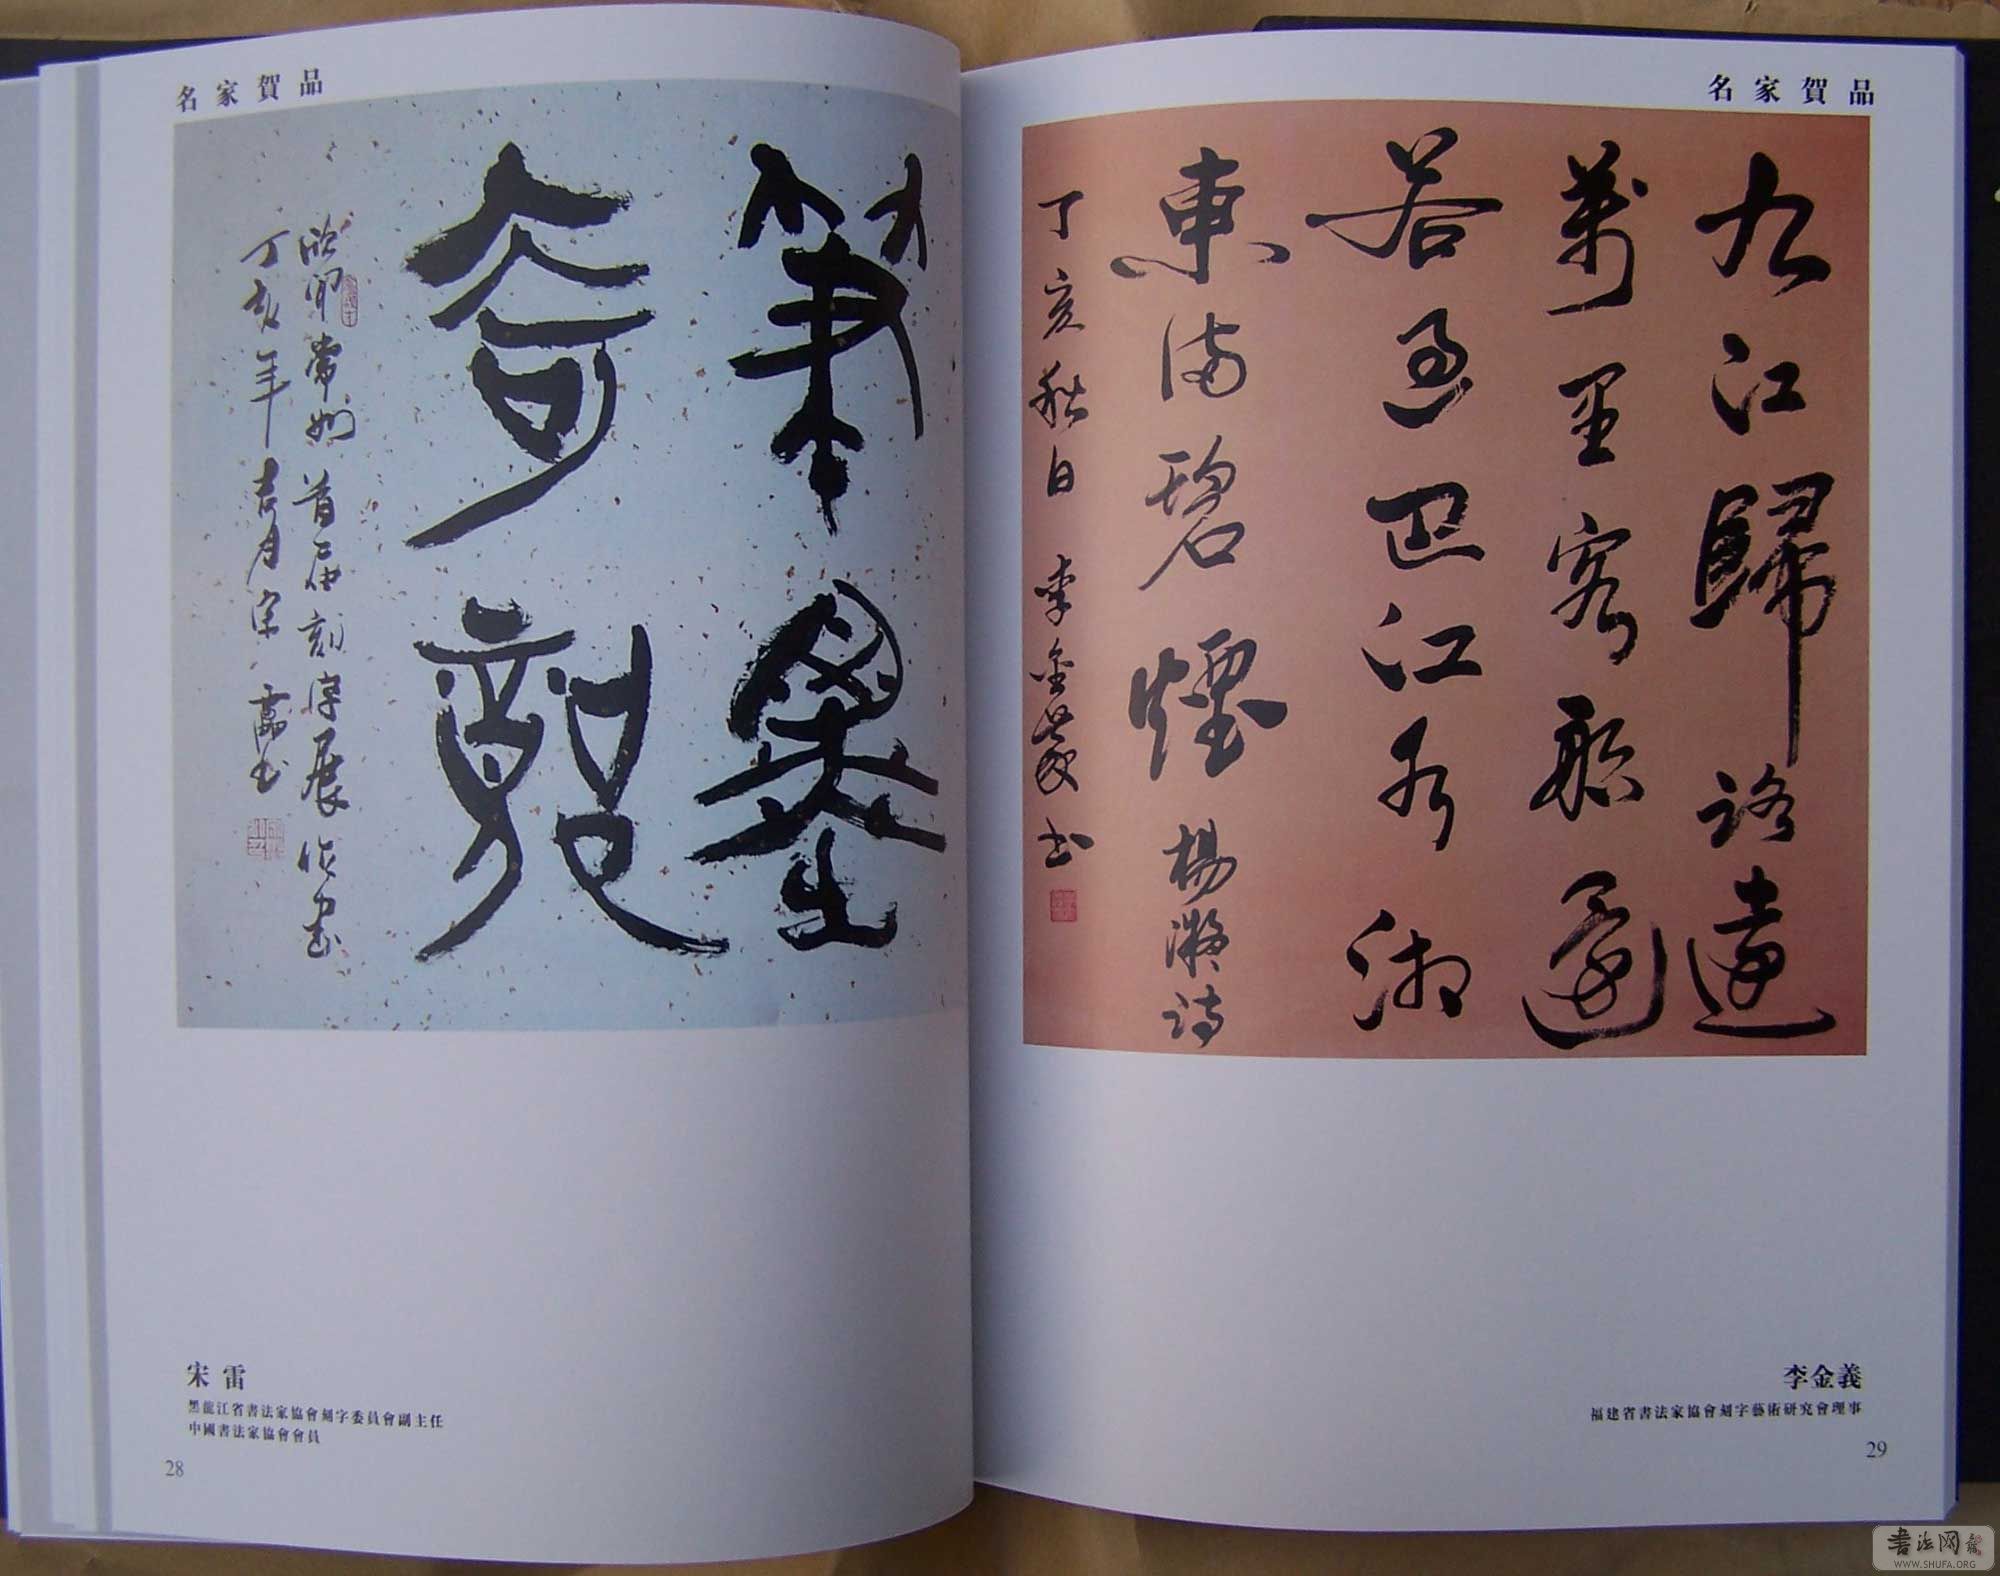 名家賀品
筆墨
奇
欣聞常州首届刻字展作書
丁亥年吉月宋雷书
宋雷
黑龍江省書法家協會刻字委員會副主任
中國書法家協會會員
28
名家賀品
九江歸路遠
萬里客船還
若過巴江水湘
東滿碧煙 楊凝詩
丁亥秋日 李金義书
李金義
福建省書法家協會刻字藝術研究會理事
29
書法网
WWW.SHUFA.ORG